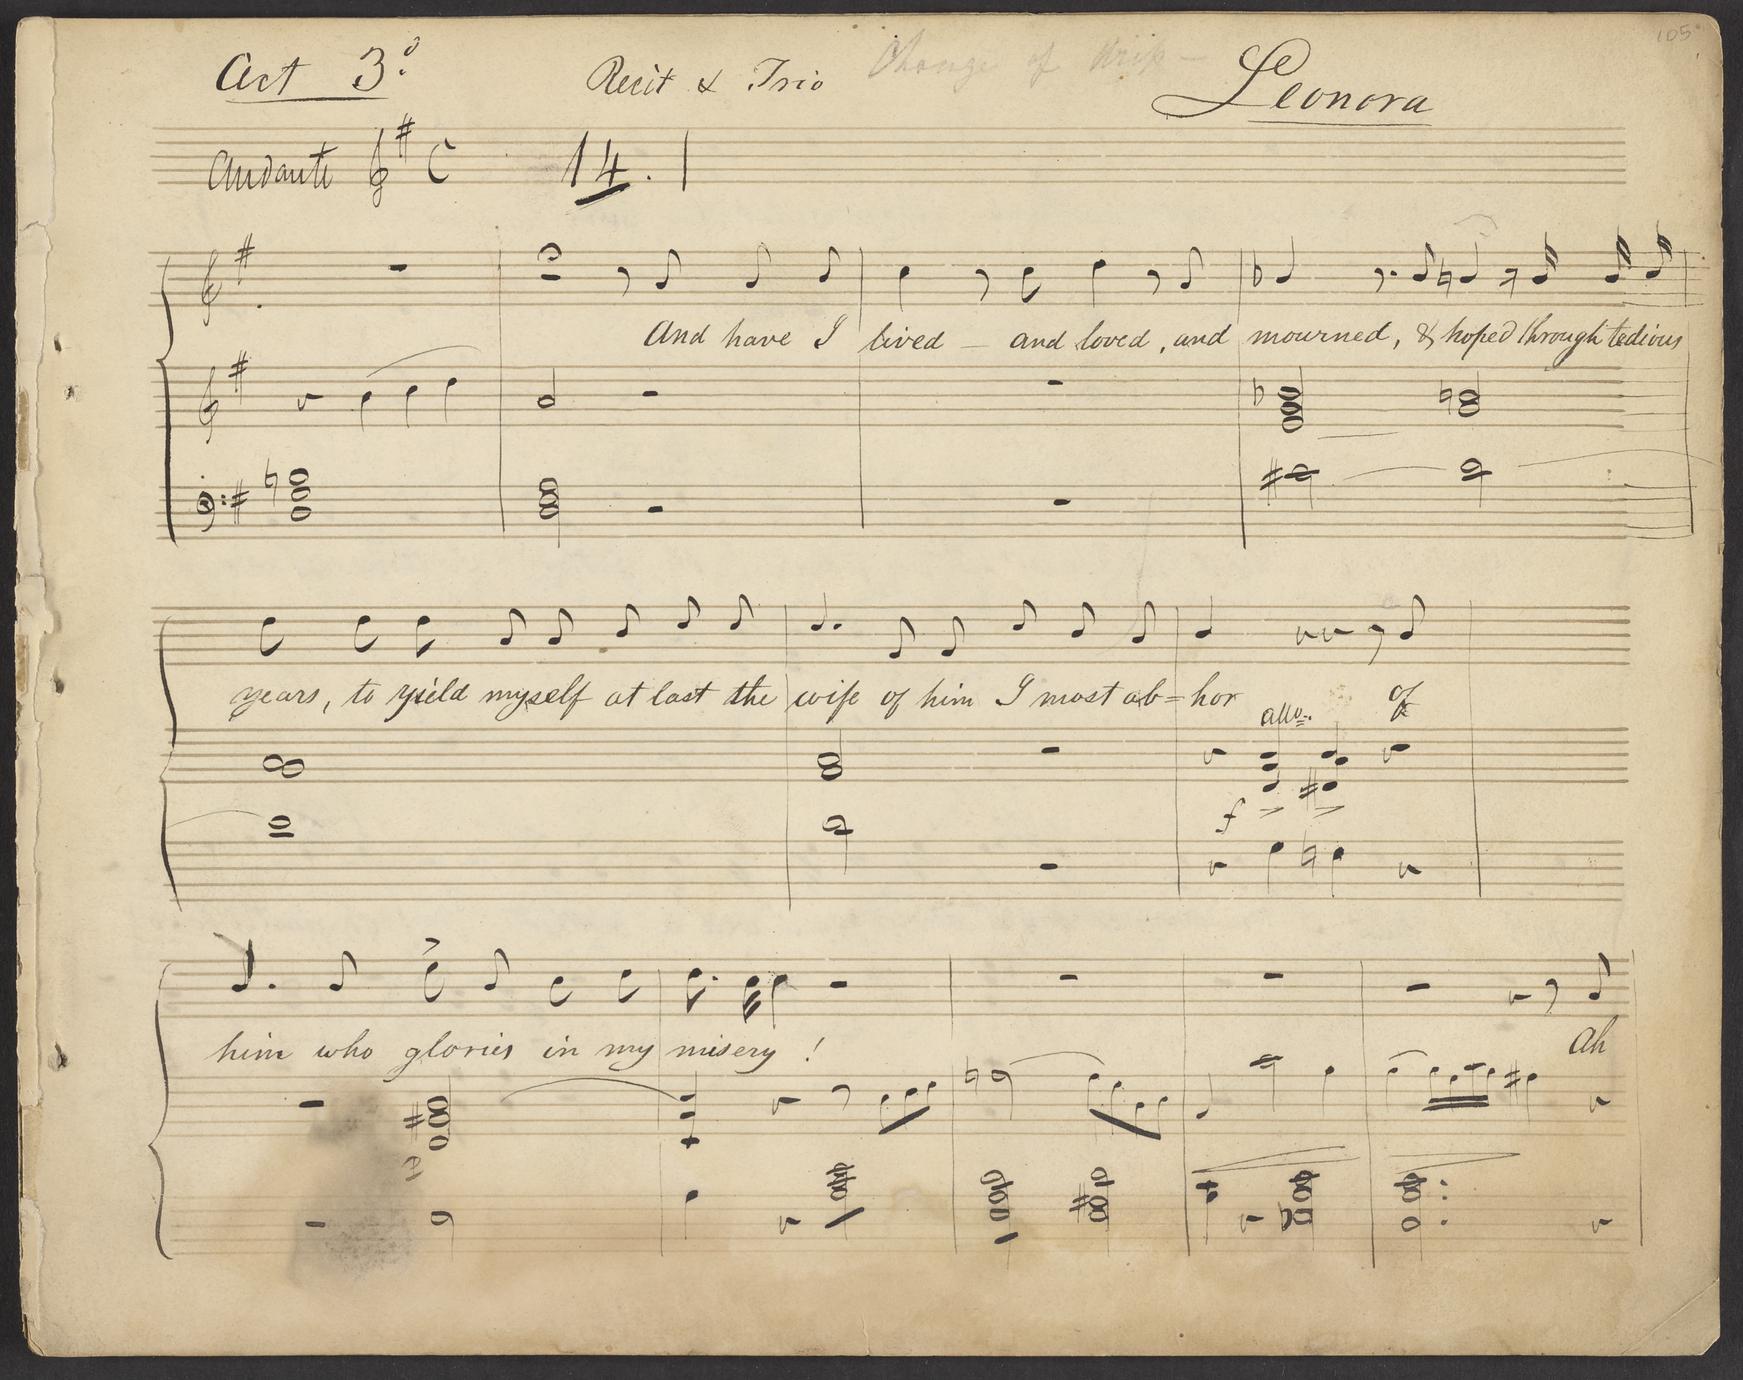 105
Act 3º Recit & Trio Change of Leonora
Andante 14.
And have I lived — and loved, and mourned, & hoped through tedious
years, to yield myself at last the wife of him I most ab=hor of
allo.
f
him who glories in my misery !
Ah